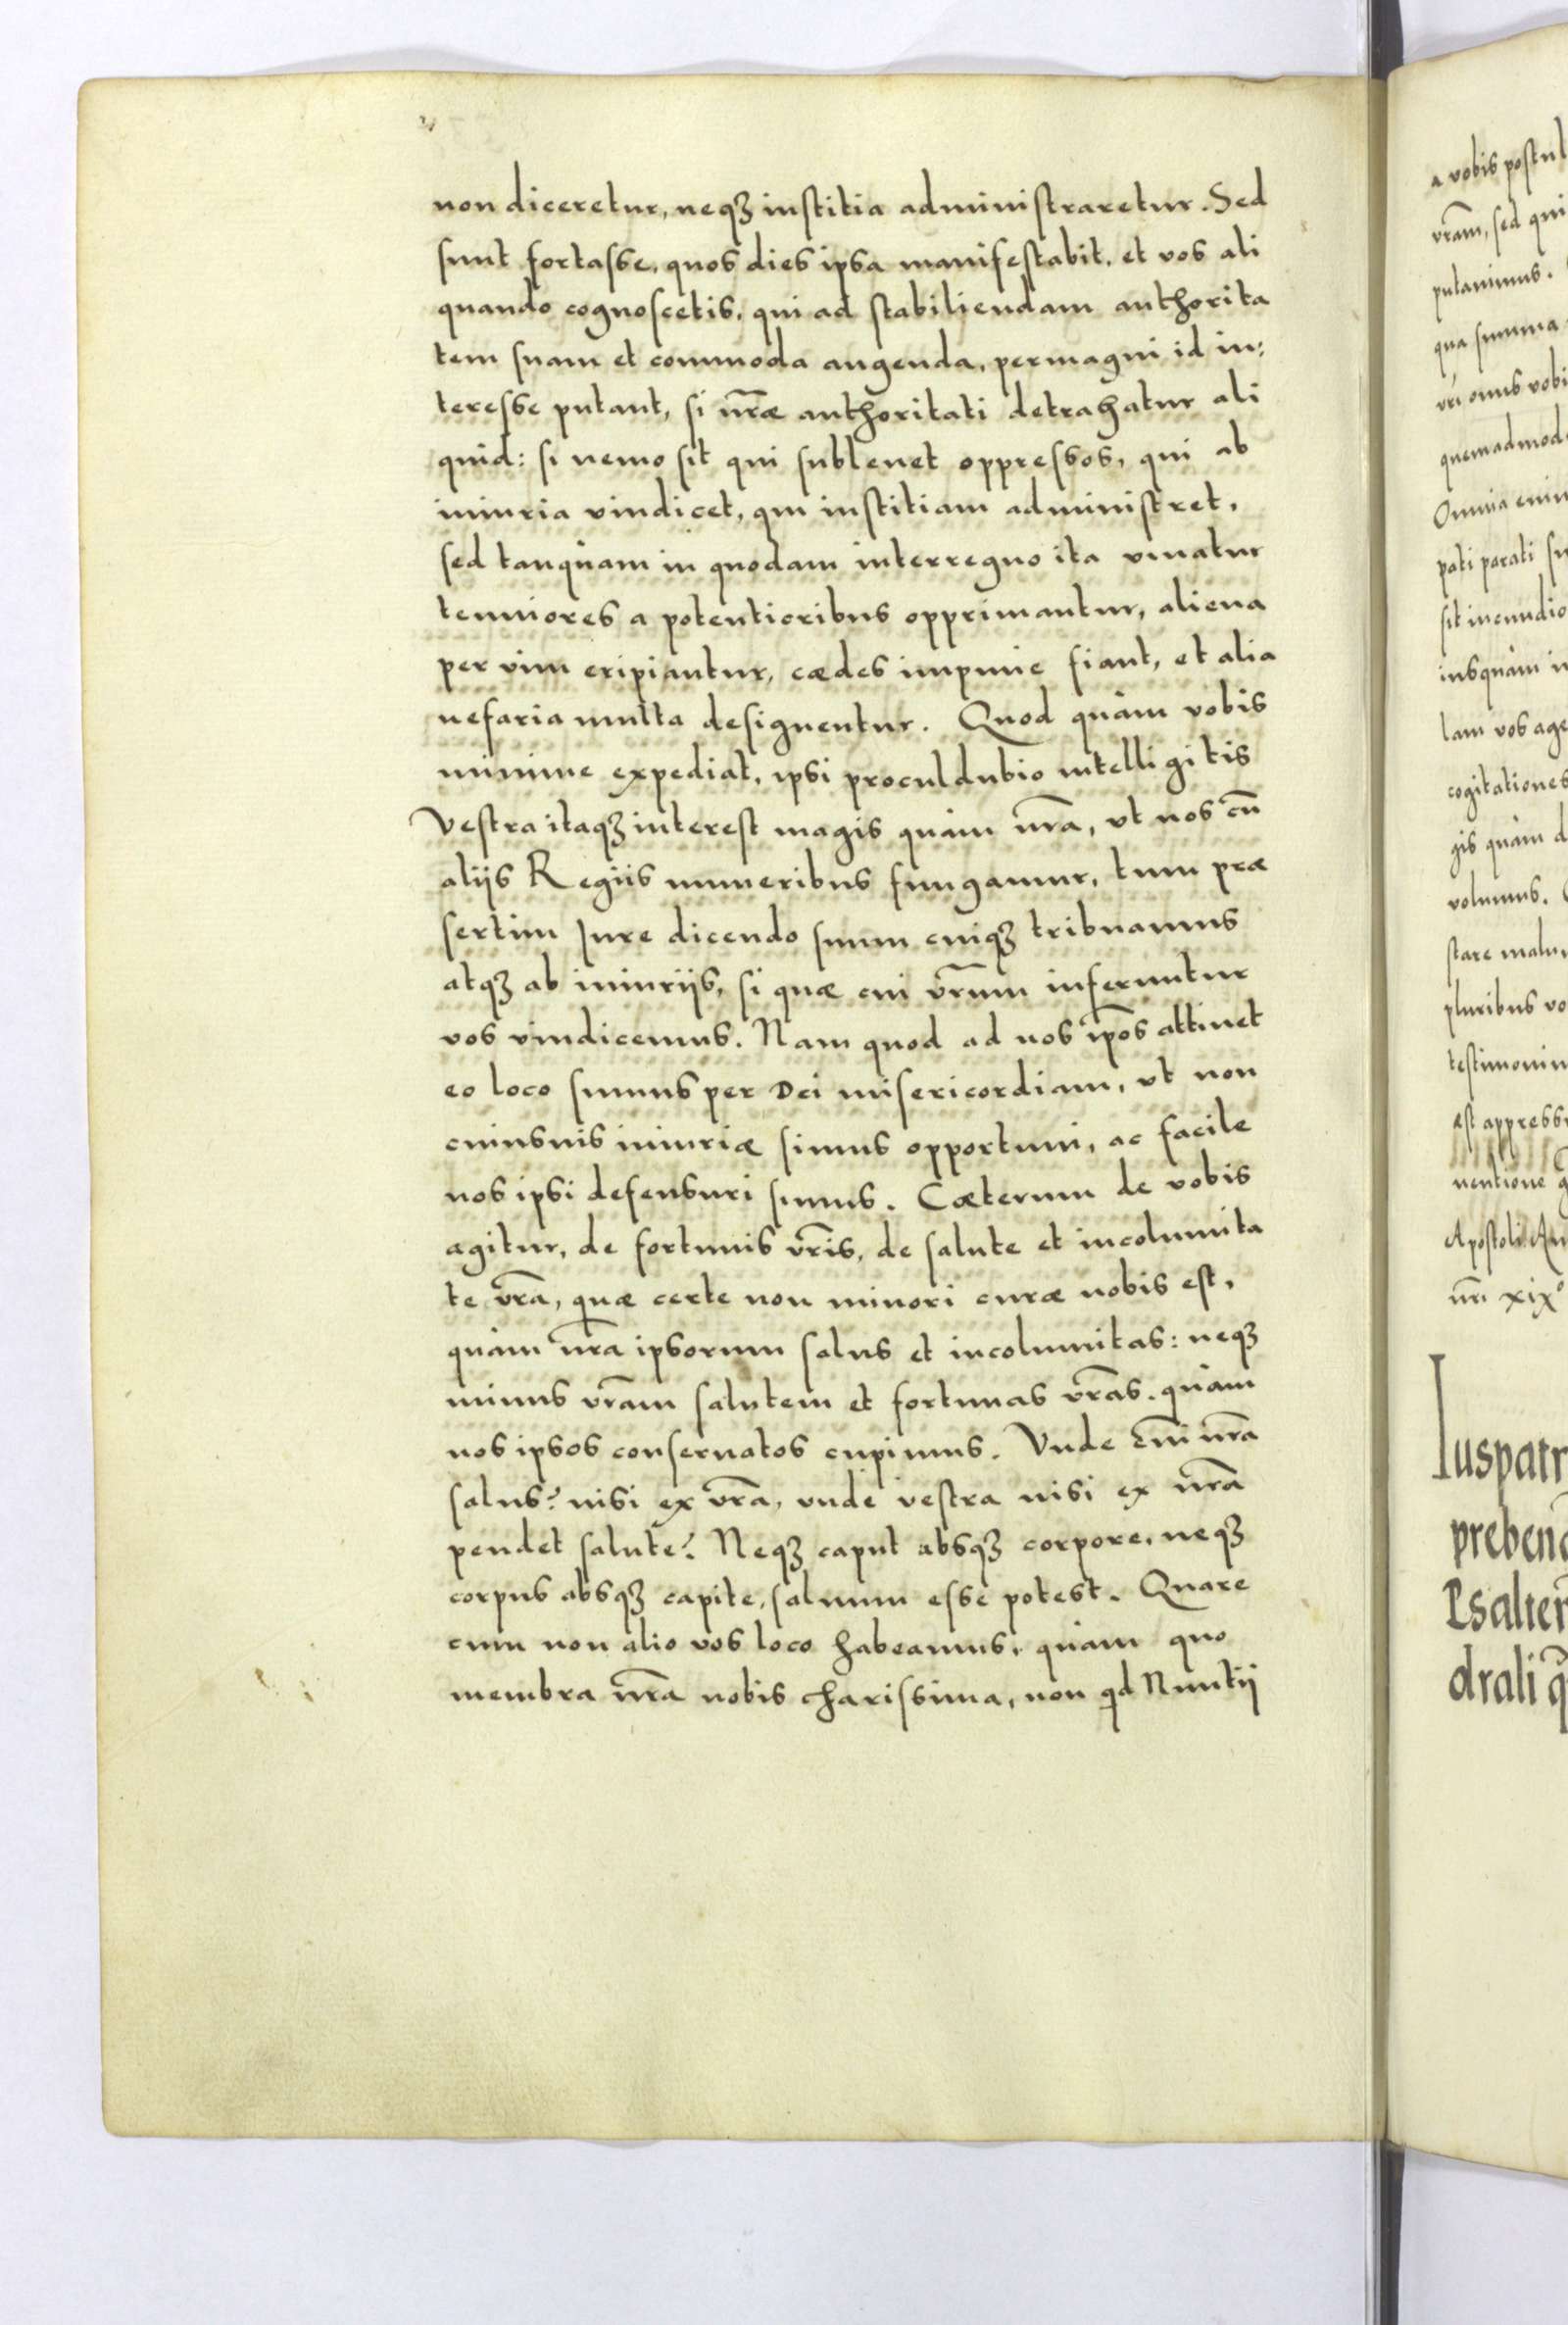 non diceretur, neqꝫ iustitia administraretur. Sed
sunt fortasse, quos dies ipsa manifestabit, et vos ali
quando cognoscetis, qui ad stabiliendam authorita
tem suam et commoda augenda, permagni id in:
teresse putant, si nr̃æ authoritati detrahatur ali
quid: si nemo sit qui subleuet oppressos, qui ab
iniuria vindicet, qui iustitiam administret,
sed tanquam in quodam interregno ita viuatur
tenuiores a potentioribus opprimantur, aliena
per vim eripiantur, cædes impune fiant, et alia
nefaria multa designentur. Quod quàm vobis
minime expediat, ipsi proculdubio intelligitis
Vestra itaqꝫ interest magis quàm nr̃a, vt nos cũ
alijs Regiis muneribus fungamur, tum præ
sertim Iure dicendo suum cuiqꝫ tribuamus
atqꝫ ab iniurijs, si quæ cui vr̃um inferuntur
vos vindicemus. Nam quod ad nos ip̃os attinet
eo loco sumus per Dei misericordiam, vt non
cuiusuis iniuriæ simus opportuni, ac facile
nos ipsi defensuri simus. Cæterum de vobis
agitur, de fortunis vr̃is, de salute et incolumita
te vr̃a, quæ certe non minori curæ nobis est,
quàm nr̃a ipsorum salus et incolumitas: neqꝫ
minus vr̃am salutem et fortunas vr̃as, quàm
nos ipsos conseruatos cupimus. Vnde em̃ nr̃a
salus? nisi ex vr̃a, vnde vestra nisi ex nr̃a
pendet salute? Neqꝫ caput absqꝫ corpore, neqꝫ
corpus absqꝫ capite, saluum esse potest. Quare
cum non alio vos loco habeamus, quàm quo
membra nr̃a nobis charissima, non qd Nuntij
a vobis postul
vr̃am, sed qui
putauimus.
qua summa
onus vobi
quemadmod
Omnia enim
pati parati su
sit incundio
iusquàm in
lam vos age
cogitationes
gis quàm d
volumus.
stare malu
pluribus vo
testimoniu
est appress
uentione q
Apostoli An
xix°
Iuspatr
preben
Psalter
drali q